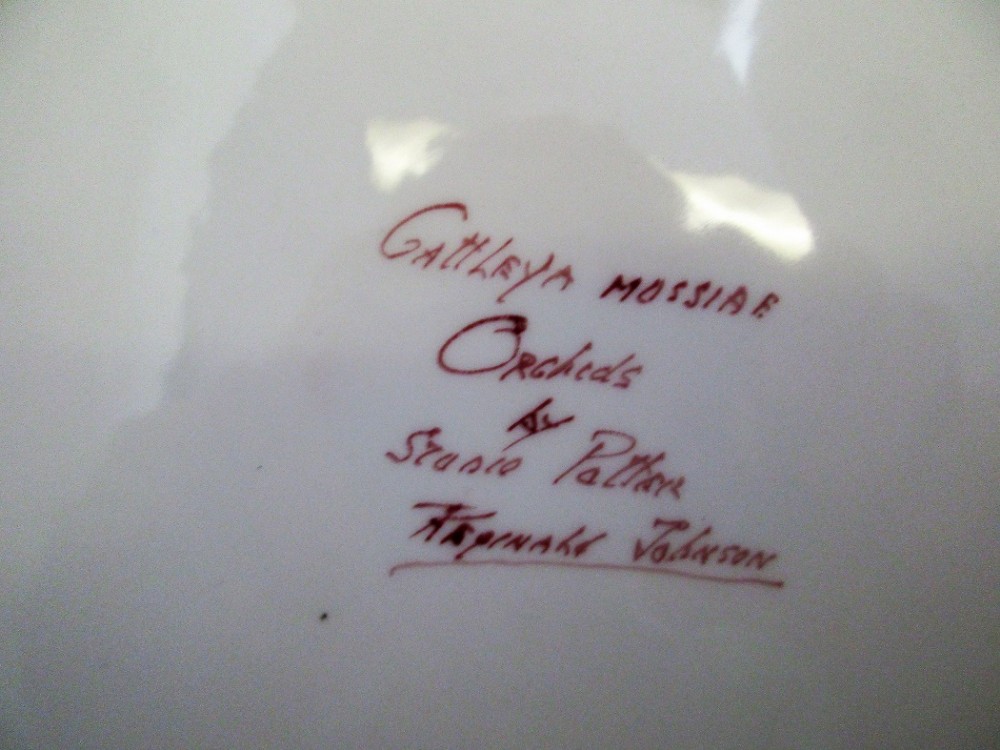 Cattleya mossiae
Orchids
by
Studio Potter
Reginald Johnson